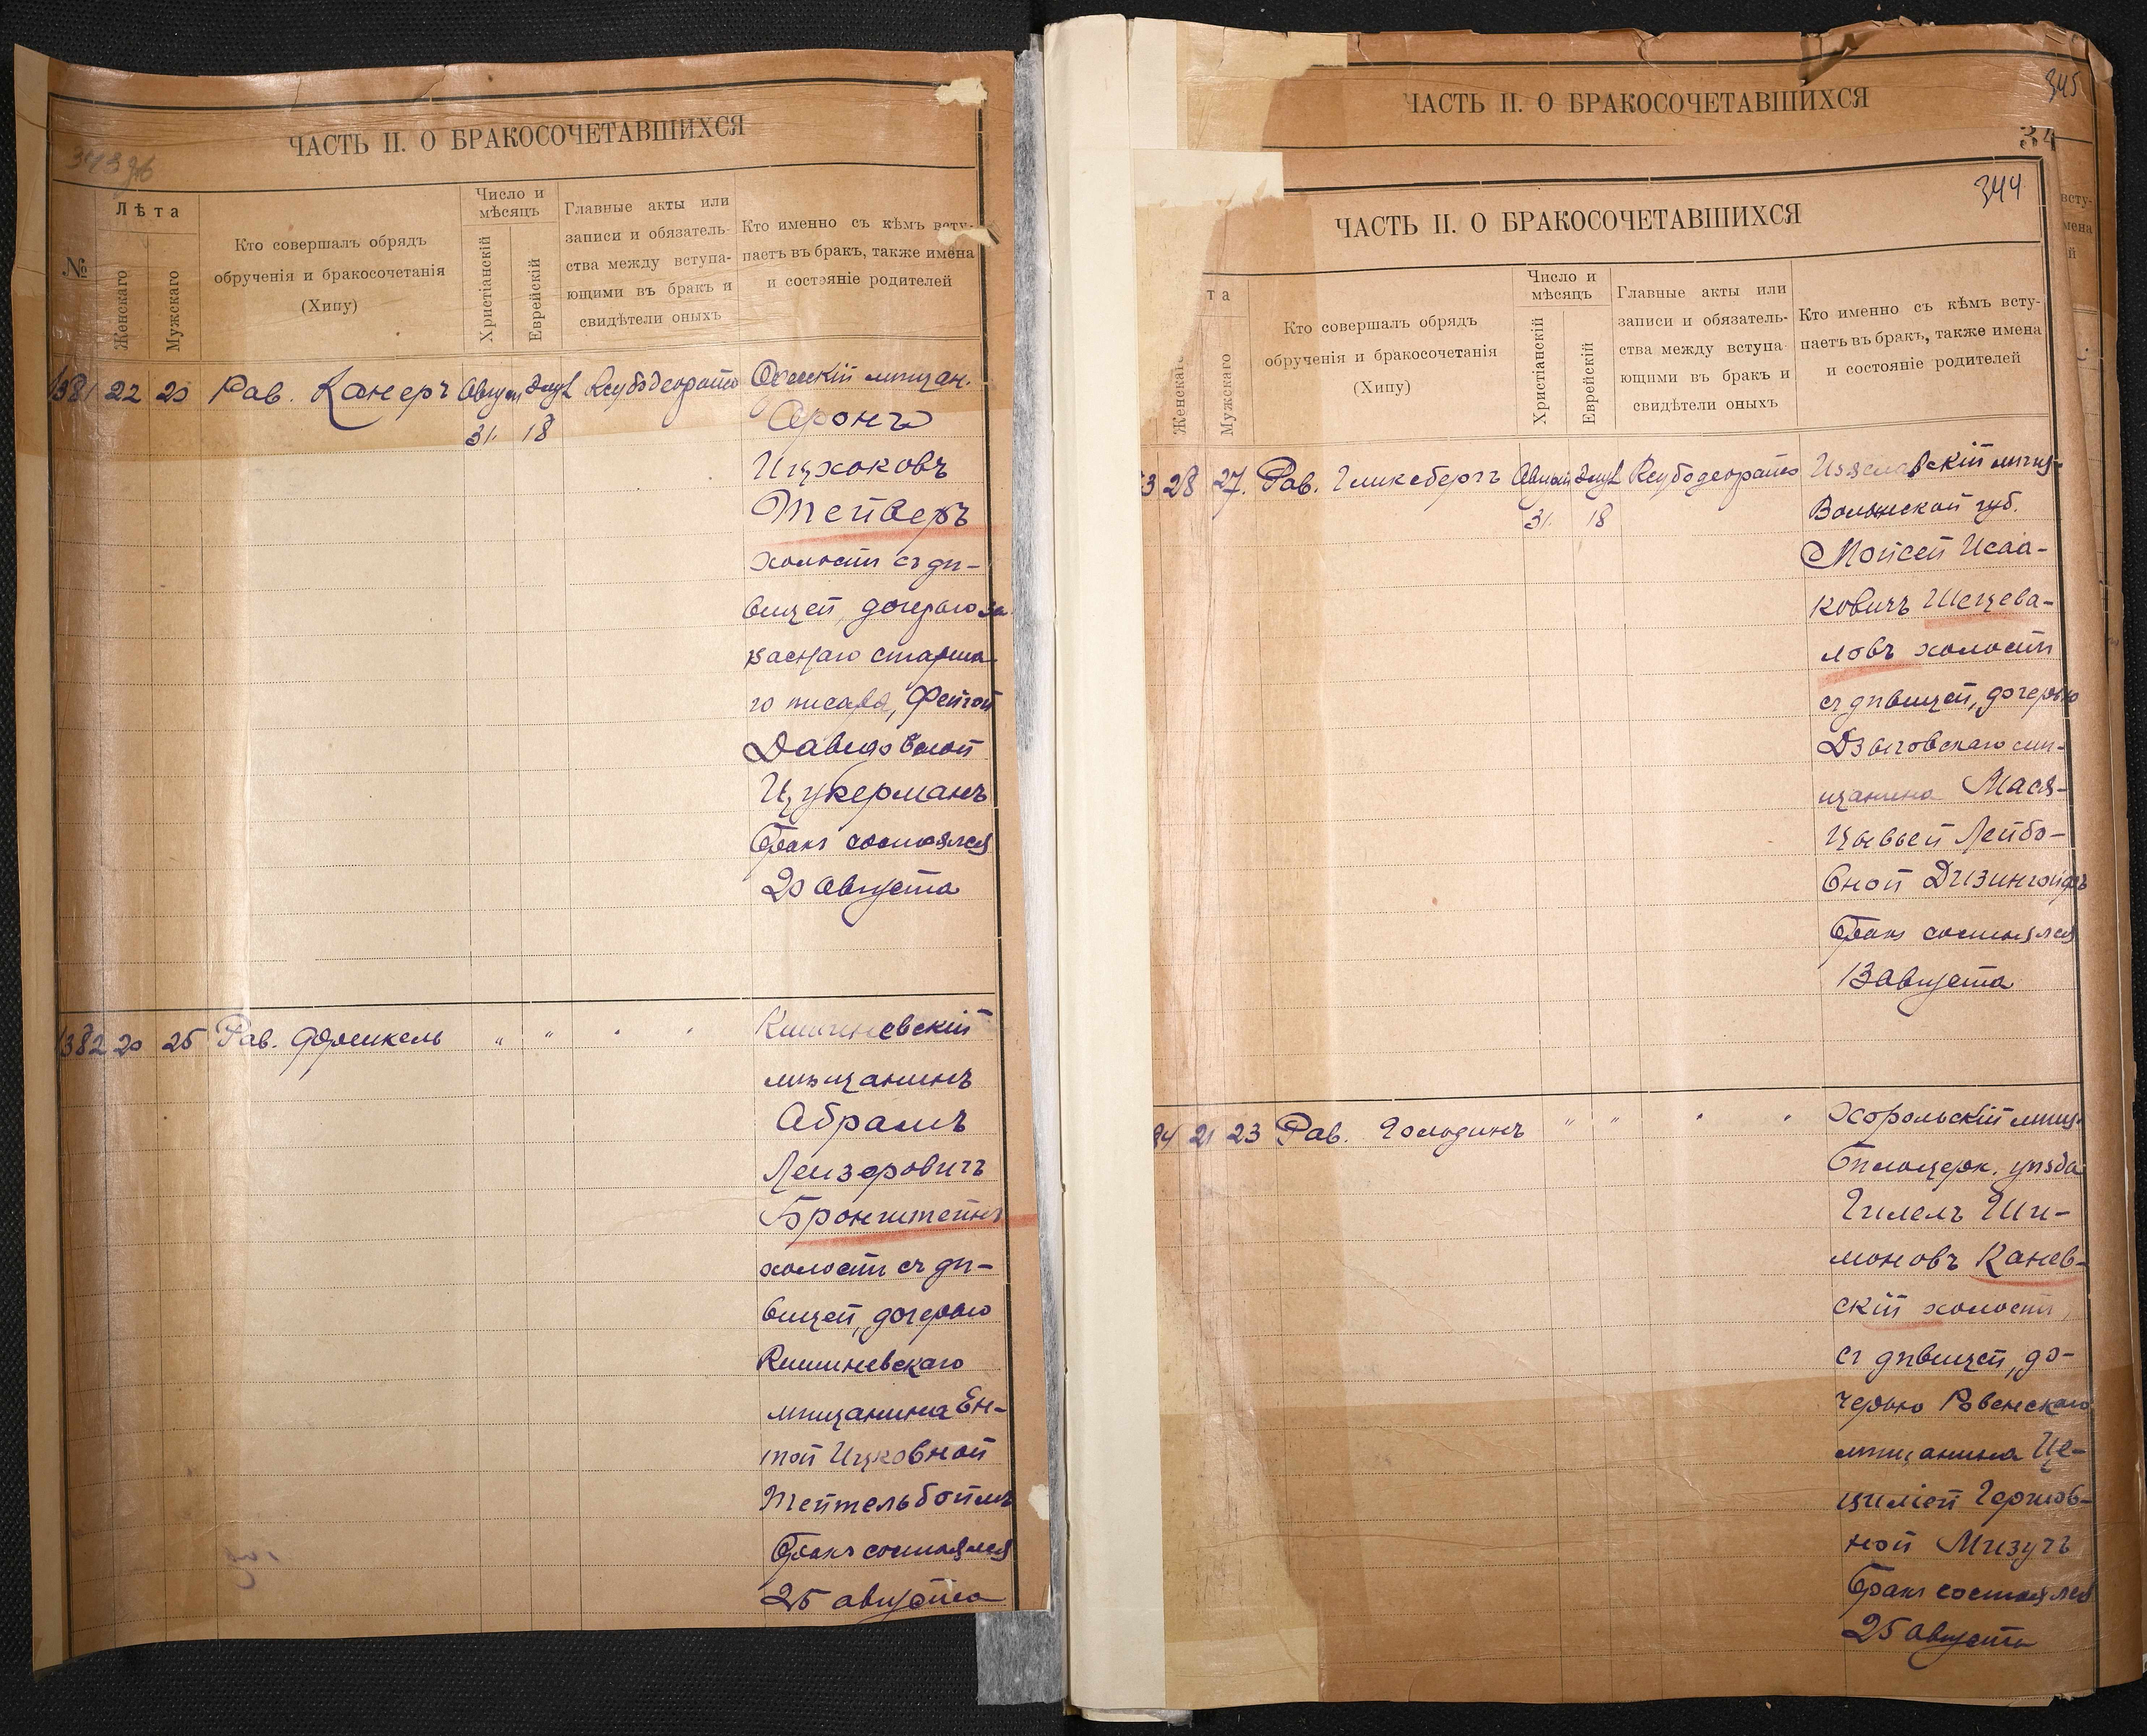 ЧАСТЬ II. О БРАКОСОЧЕТАВШИХСЯ
№
Лѣта
Женскаго
Мужскаго
Кто совершалъ обрядъ
обрученія и бракосочетанія
(Хипу)
Число и
мѣсяцъ
Христіанскій
Еврейскій
Главные акты или
записи и обязатель-
ства между вступа-
ющими въ бракъ и
свидѣтели оныхъ
Кто именно съ кѣмъ всту-
паетъ въ бракъ, также имена
и состояніе родителей
1381 22 20 Рав. Канеръ Август Элул Ксубодеорайсо Одесскій мѣщан.
31. 18 Аронъ
Ицхоковъ
Тейверъ
холостъ съ дѣ-
вицей, дочерью за
паснаго старша
го писаря, Фейгой
Давидовной
Цукерманъ
бракъ состоялся
20 августа
1382 20 25 Рав. Френкель " " " " Кишиневскій
мѣщанинъ
Абрамъ
Лейзеровичъ
Бронштейнъ
холостъ съ дѣ-
вицей, дочерью
Кишиневскаго
мѣщанина Ен-
той Ицковной
Тейтельбоймъ
бракъ состоялся
25 августа
ЧАСТЬ II. О БРАКОСОЧЕТАВШИХСЯ
345
34
344
ЧАСТЬ II. О БРАКОСОЧЕТАВШИХСЯ
та
Женскаго
Мужскаго
Кто совершалъ обрядъ
обрученія и бракосочетанія
(Хипу)
Число и
мѣсяцъ
Христіанскій
Еврейскій
Главные акты или
записи и обязатель-
ства между вступа-
ющими въ бракъ и
свидѣтели оныхъ
Кто именно съ кѣмъ всту-
паетъ въ бракъ, также имена
и состояніе родителей
3 28 27. Рав. Гликсбергъ Август Элул Ксубодеорайсо Изяславскій мѣщ-
31. 18 Волынской губ.
Мойсей Исаа-
ковичъ Шецева-
ловъ холостъ
съ дѣвицей, дочерью
Дзыговскаго мѣ-
щанина Мася-
Цывьей Лейбо-
вной Дизингофъ
бракъ состоялся
13 августа
84 21 23 Рав. Голодинъ " " " " Хорольскій мѣщ.
Бѣлоцерк. уѣзда
Гилелъ Ши-
моновъ Канев-
скій холостъ,
съ дѣвицей, до-
черью Ровенскаго
мѣщанина Це-
циліей Гершов-
ной Мизучъ
бракъ состоялся
25 августа